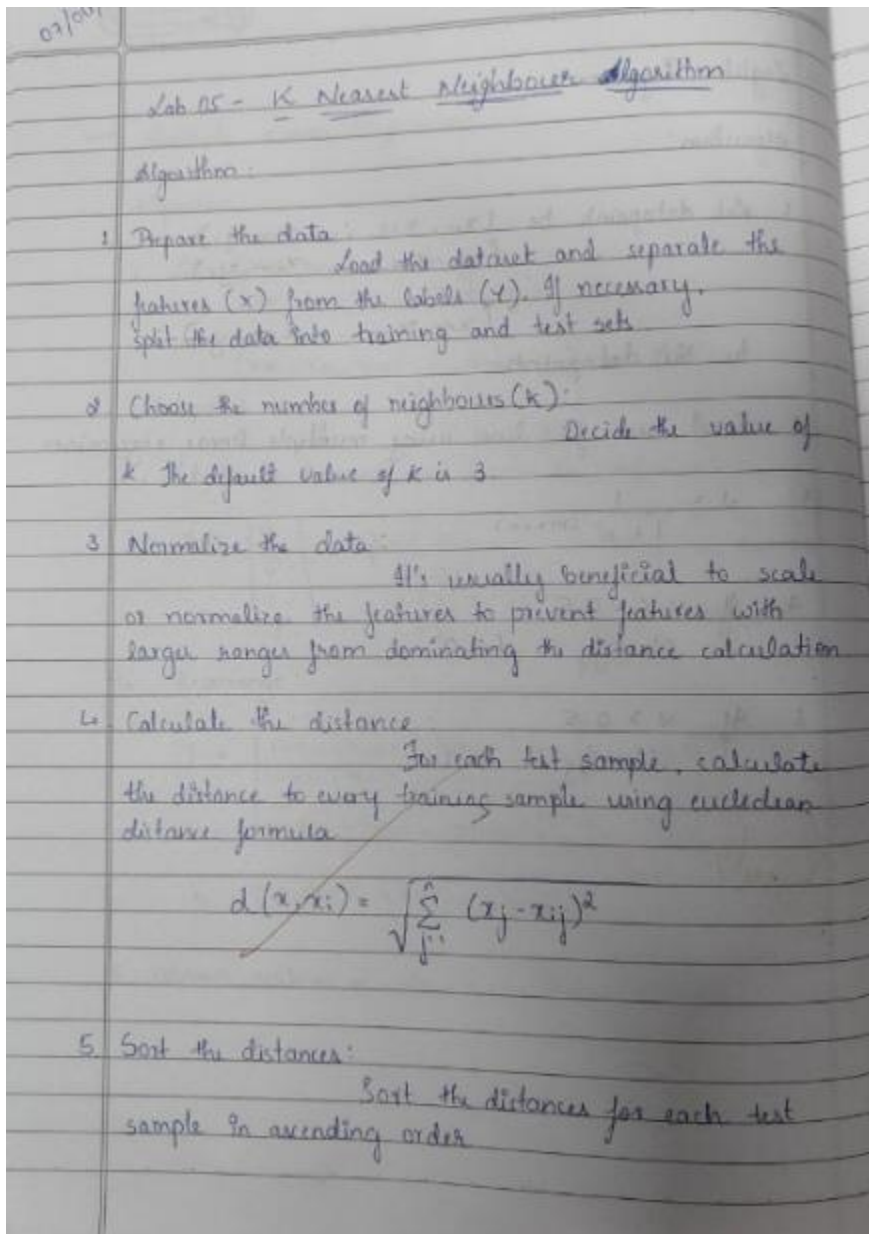 Lab 05 - K Nearest Neighbour Algorithm
Algorithm:
1 Prepare the data:
Load the dataset and separate the
features (x) from the labels (Y). If necessary,
split the data into training and test sets
2 Choose the number of neighbours (k):
Decide the value of
k The default value of k is 3
3 Normalize the data:
It's usually beneficial to scale
or normalize the features to prevent features with
larger ranges from dominating the distance calculation
4. Calculate the distance:
For each test sample, calculate
the distance to every training sample using eucledean
distance formula
d(x, xi) = √ Σ j=1 n (xj - xij)²
5. Sort the distances:
Sort the distances for each test
sample in ascending order